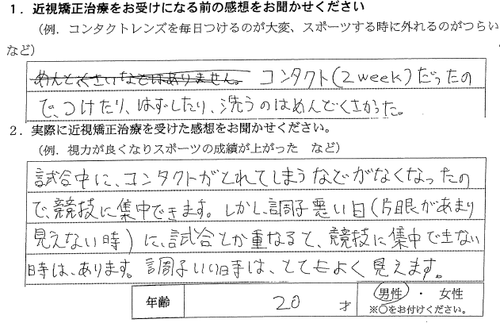 1. 近視矯正治療をお受けになる前の感想をお聞かせください
(例. コンタクトレンズを毎日つけるのが大変、スポーツする時に外れるのがつらい
など)
めんどくさいなどはありません。 コンタクト(2week)だったの
で、つけたり、はずしたり、洗うのはめんどくさかった。
2. 実際に近視矯正治療を受けた感想をお聞かせください。
(例. 視力が良くなりスポーツの成績が上がった など)
試合中に、コンタクトがとれてしまうなどがなくなったの
で、競技に集中できます。しかし、調子悪い日(片眼があまり
見えない時)に、試合とか重なると、競技に集中できない
時は、あります。調子いい時は、とてもよく見えます。
年齢 20 才 男性 ・ 女性
※○をお付けください。